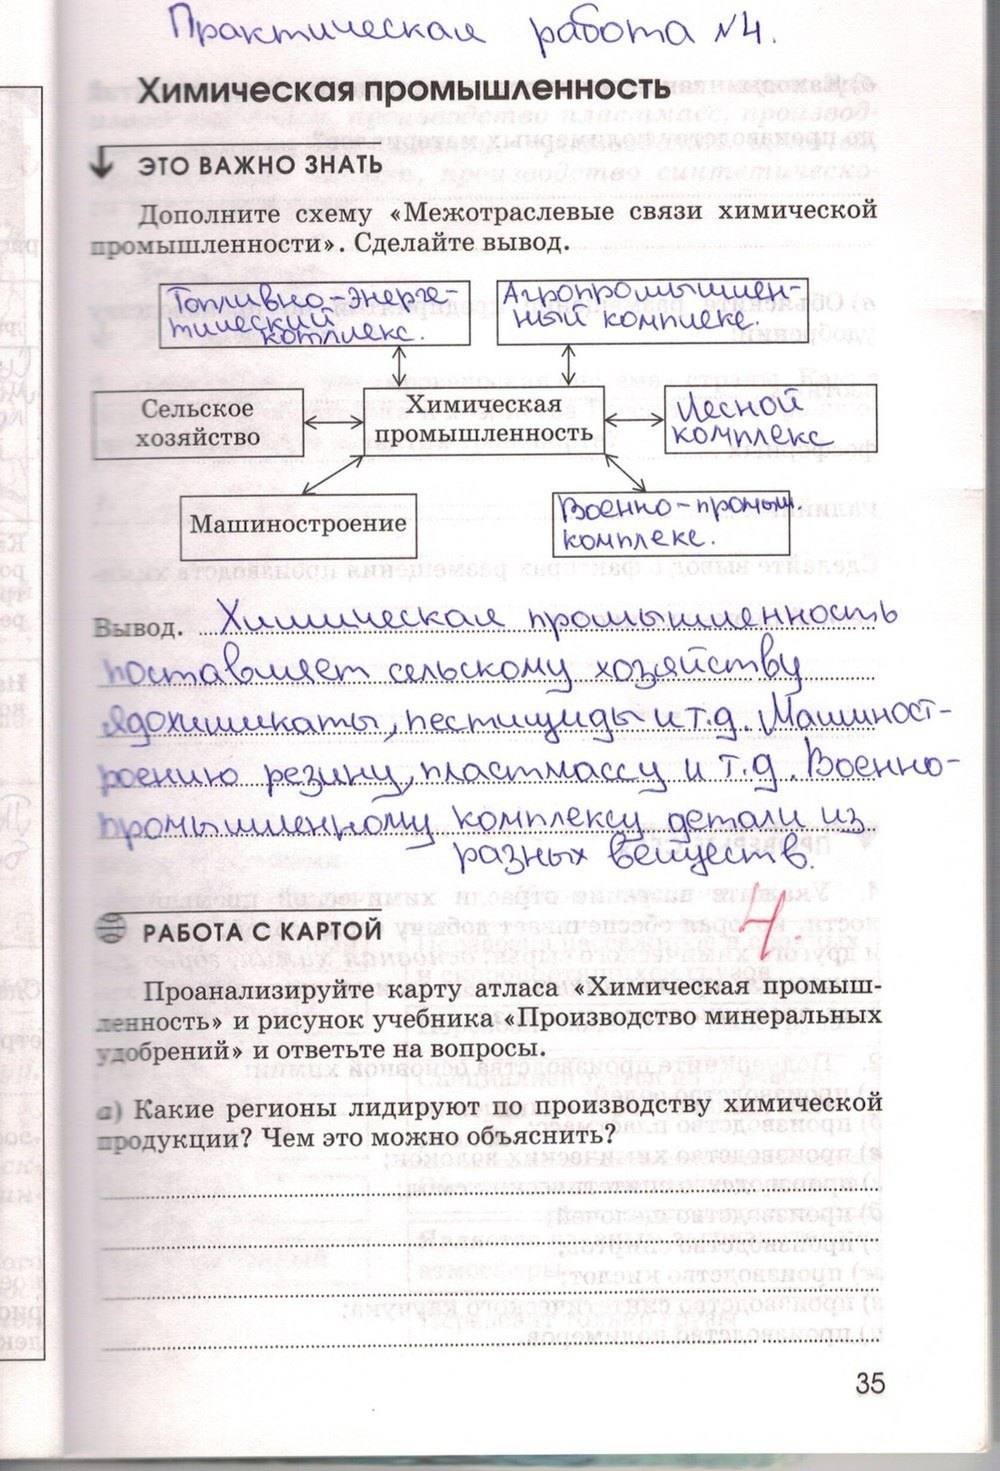 Практическая работа №4.
Химическая промышленность
ЭТО ВАЖНО ЗНАТЬ
Дополните схему «Межотраслевые связи химической
промышленности». Сделайте вывод.
Топливно-энерге-
тический
комплекс.
Агропромышлен-
ный комплекс.
Сельское
хозяйство
Химическая
промышленность
Лесной
комплекс
Машиностроение
Военно-пром.
комплекс.
Вывод. Химическая промышленность
поставляет сельскому хозяйству
ядохимикаты, пестициды и т.д. Машиност-
роению резину, пластмассу и т.д. Военно-
промышленному комплексу детали из
разных веществ.
4.
РАБОТА С КАРТОЙ
Проанализируйте карту атласа «Химическая промыш-
ленность» и рисунок учебника «Производство минеральных
удобрений» и ответьте на вопросы.
а) Какие регионы лидируют по производству химической
продукции? Чем это можно объяснить?
35